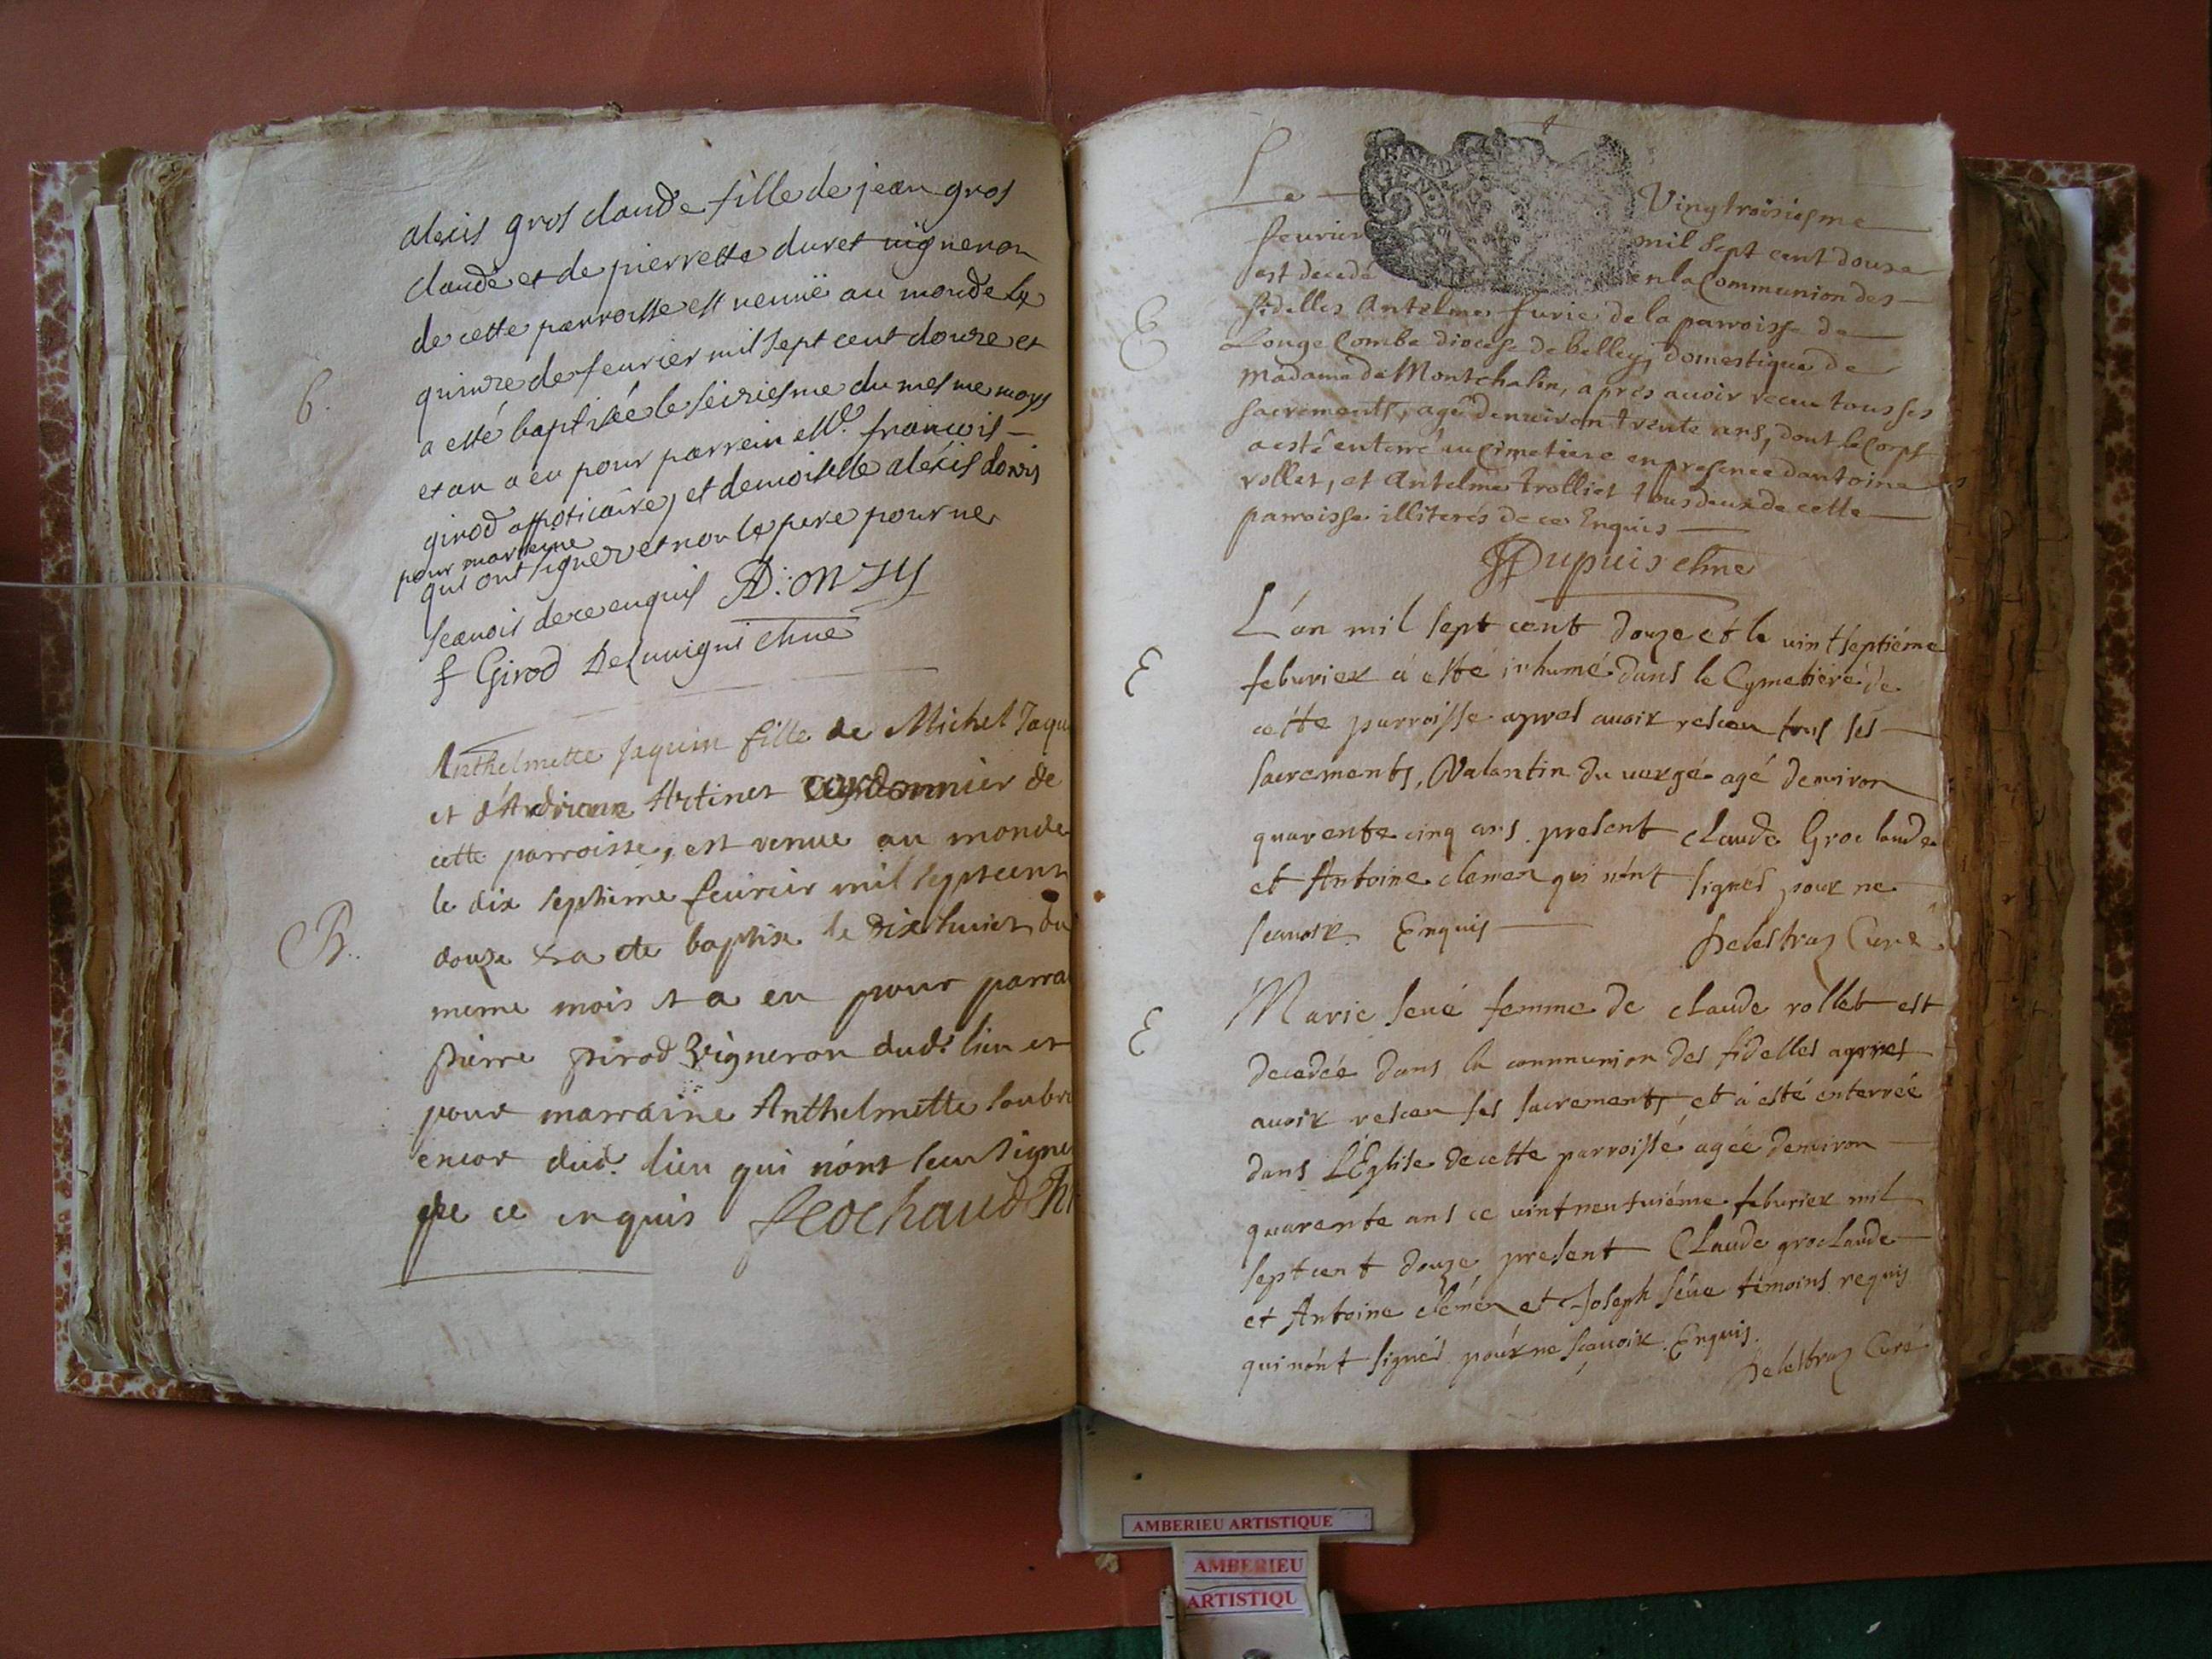 alexis gros claude fille de jean gros
claude et de pierrette duret uigneron
de cette parroisse est uenuë au monde le
quinze de feurier mil sept cent douze et
B.
a esté baptisée le seiziesme du mesme moys
et an a eu pour parrein Mr. francois
girod appoticaire, et demoiselle alexis donzy
pour marreine
qui ont signez et non le pere pour ne
scauoir de ce enquis A: ONZY
f Girod Delauigni
Anthelmette Jaquin fille de Michel Jaqu
et d'Adriane Artinet cordonnier de
cette parroisse, est venue au monde
le dix septieme feurier mil septcent
B.
douze & a ete baptisé le dixhuict du
meme mois et a eu pour parra
pierre girod Vigneron dud. lieu et
pour marraine Anthelmette loubr
encor dud. lieu qui n'ont sceu signe
de ce enquis
Le Vingtroisiesme
feurier mil sept cent douze
est decedé en la Communion des
E
fidelles Antelme furie de la parroisse de
Longe Combe diocese de belley, domestique de
Madame de Montchalin, aprés auoir receu tous ses
sacrements, agé denuiron trente ans, dont le Corps
a esté enterré au Cimetiere en presence dantoine
rollet, et Antelme trolliet tous deux de cette
parroisse illiterés de ce Enquis
Dupuis
L'an mil sept cent douze et le uint septiéme
E
feburier á esté inhumé dans le Cymetiére de
cette parroisse apres auoir resceu tous ses
sacrements, Valantin du uergé agé denuiron
quarente cinq ans present Claude Groclaude
et Antoine clemen qui n'ont signés pour ne
scauoir Enquis
Delestraz Curé
Marie seué femme de claude rollet est
E
decedée dans la communion des fidelles apres
auoir resceu ses sacrements et á esté enterrée
dans l'Eglise de cette parroisse agée denuiron
quarente ans ce uintneufuiéme feburier mil
septcent douze present Claude groclaude
et Antoine clémen et Joseph séue témoins requis
qui n'ont signés pour ne scauoir Enquis.
Delestraz Curé
AMBERIEU ARTISTIQUE
AMBERIEU
ARTISTIQU